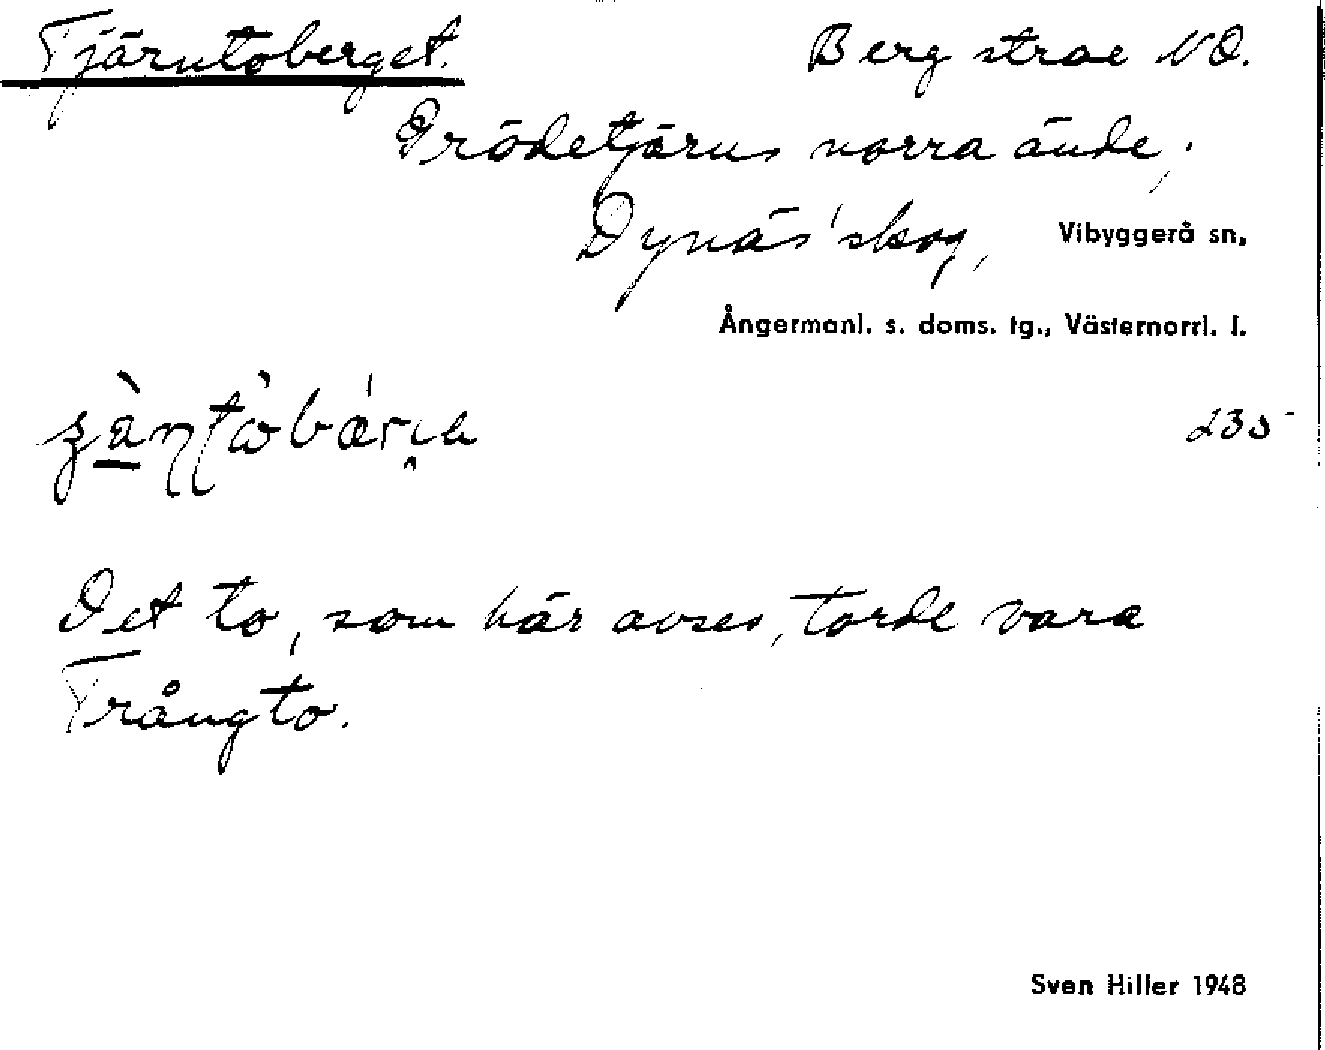 Tjärntoberget. Berg strax NO.
Grödetjärns norra ände,
Dynäs' skog, Vibyggerå sn,
Ångermanl. s. doms. tg., Västernorrl. l.
235
Det to, som här avses, torde vara
Trångto.
Sven Hiller 1948